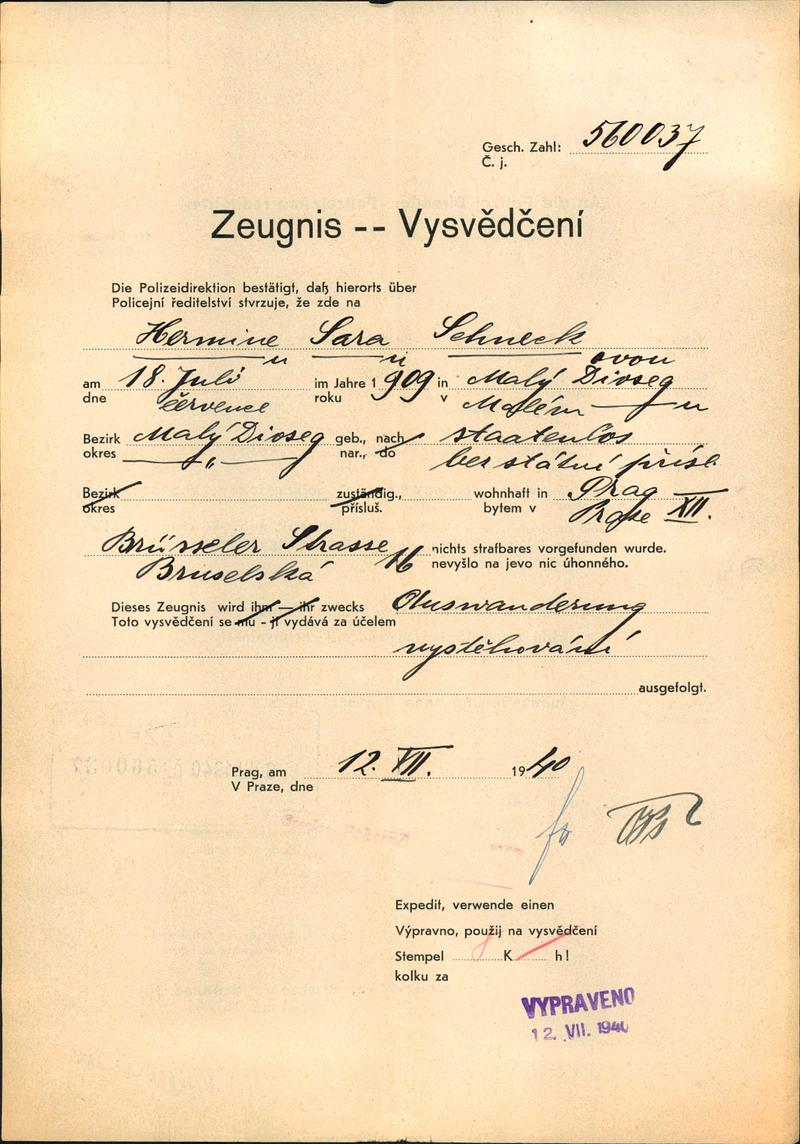 Gesch. Zahl: 560037
Č. j.
Zeugnis -- Vysvědčení
Die Polizeidirektion bestätigt, daß hierorts über
Policejní ředitelství stvrzuje, že zde na
Hermine Sara Schneck
u u ovou
am 18. Juli im Jahre 1909 in Malý Dioseg
dne července roku v Malém — " — u
Bezirk Malý Dioseg geb., nach staatenlos
okres — " — nar., do bez státní přísl.
Bezirk zuständig., wohnhaft in Prag
okres přísluš. bytem v Praze XII.
Brüsseler Strasse 16 nichts strafbares vorgefunden wurde.
Bruselská nevyšlo na jevo nic úhonného.
Dieses Zeugnis wird ihm — ihr zwecks Auswanderung
Toto vysvědčení se mu - jí vydává za účelem
vystěhování
ausgefolgt.
Prag, am 12. VII. 1940
V Praze, dne
Expedit, verwende einen
Výpravno, použij na vysvědčení
Stempel K h!
kolku za
VYPRAVENO
12. VII. 1940